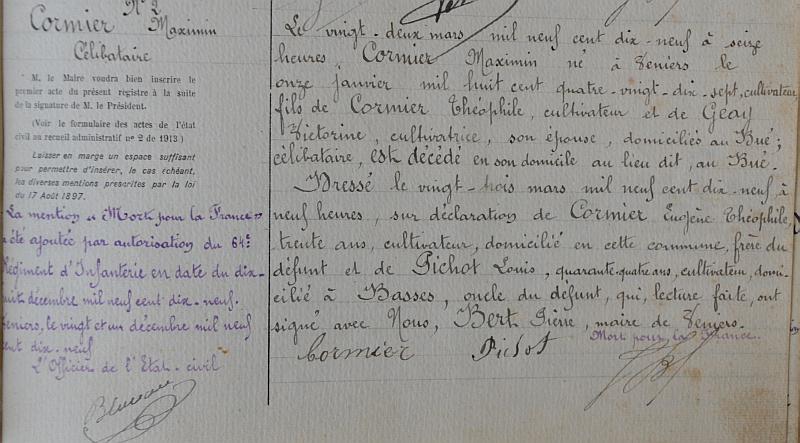 N° 2
Cormier Maximin
Célibataire
M. le Maire voudra bien inscrire le
premier acte du présent registre à la suite
de la signature de M. le Président.
(Voir le formulaire des actes de l'état
civil au recueil administratif n° 2 de 1913)
Laisser en marge un espace suffisant
pour permettre d'insérer, le cas échéant,
les diverses mentions prescrites par la loi
du 17 Août 1897.
La mention « Mort pour la France »
a été ajoutée par autorisation du 64e
Régiment d'Infanterie en date du dix-
huit décembre mil neuf cent dix-neuf.
Veniers, le vingt et un décembre mil neuf
cent dix-neuf
L'Officier de l'Etat-civil
Le vingt-deux mars mil neuf cent dix-neuf à seize
heures, Cormier Maximin né à Veniers le
onze janvier mil huit cent quatre-vingt-dix-sept, cultivateur
fils de Cormier Théophile, cultivateur et de Geay
Victorine, cultivatrice, son épouse, domiciliés au Bué;
célibataire, est décédé en son domicile au lieu dit, au Bué.
Dressé le vingt-trois mars mil neuf cent dix-neuf à
neuf heures, sur déclaration de Cormier Eugène Théophile,
trente ans, cultivateur, domicilié en cette commune, frère du
défunt et de Pichot Louis, quarante-quatre ans, cultivateur, domi-
cilié à Basses, oncle du défunt, qui, lecture faite, ont
signé avec Nous, Bert Pierre, maire de Veniers.
Mort pour la France.
Cormier Pichot